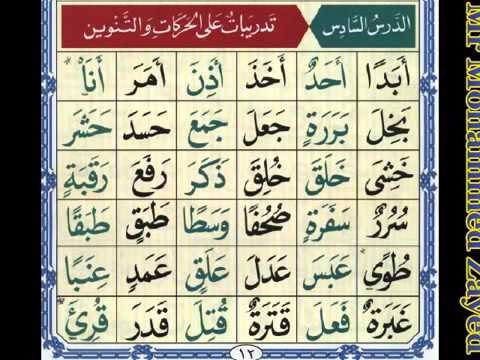 الدَّرْسُ السَّادِسُ تَدْرِيبَاتٌ عَلَى الْحَرَكَاتِ وَالتَّنْوِينِ
أَبَدًا أَحَدٌ أَخَذَ أَذِنَ أَمَرَ أَنَا۠
بَخِلَ بَرَرَةٍ جَعَلَ جَمَعَ حَسَدَ حَشَرَ
خَشِیَ خَلَقَ خُلِقَ ذَكَرَ رَفَعَ رَقَبَةٍ
سُرُرٌ سَفَرَةٍ صُحُفًا وَسَطًا طَبَقٍ طَبَقًا
طُوًى عَبَسَ عَدَلَ عَلَقٍ عَمَدٍ عِنَبًا
غَبَرَةٌ فَعَلَ قَتَرَةٌ قُتِلَ قَدَرَ قُرِئَ
١٢
Mr Mohammed Zayed